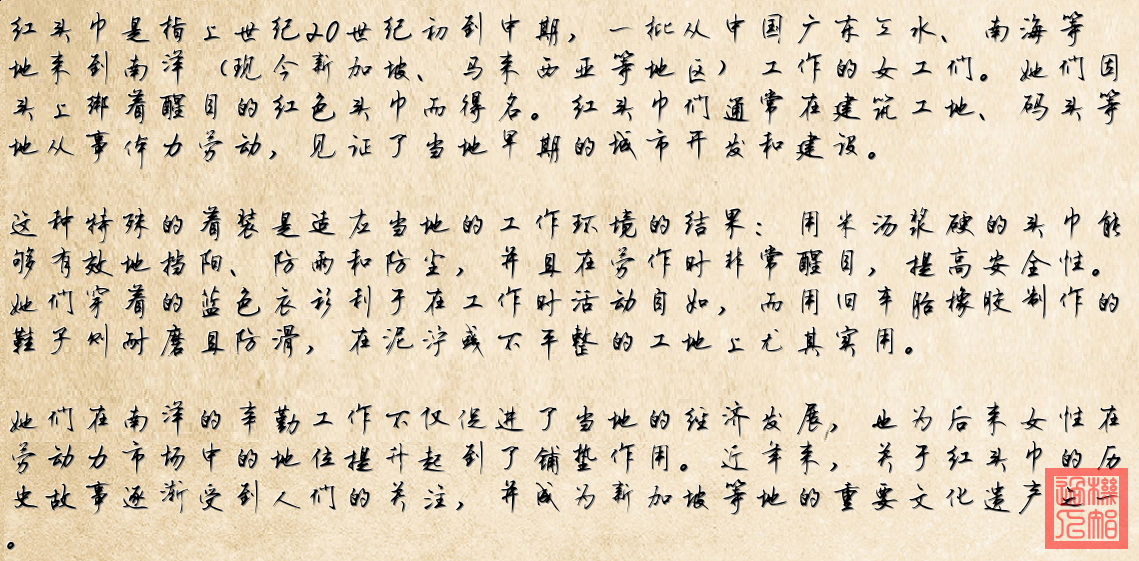 红头巾是指上世纪20世纪初到中期，一批从中国广东三水、南海等
地来到南洋（现今新加坡、马来西亚等地区）工作的女工们。她们因
头上绑着醒目的红色头巾而得名。红头巾们通常在建筑工地、码头等
地从事体力劳动，见证了当地早期的城市开发和建设。
这种特殊的着装是适应当地的工作环境的结果：用米汤浆硬的头巾能
够有效地挡阳、防雨和防尘，并且在劳作时非常醒目，提高安全性。
她们穿着的蓝色衣衫利于在工作时活动自如，而用旧车胎橡胶制作的
鞋子则耐磨且防滑，在泥泞或不平整的工地上尤其实用。
她们在南洋的辛勤工作不仅促进了当地的经济发展，也为后来女性在
劳动力市场中的地位提升起到了铺垫作用。近年来，关于红头巾的历
史故事逐渐受到人们的关注，并成为新加坡等地的重要文化遗产之一
。